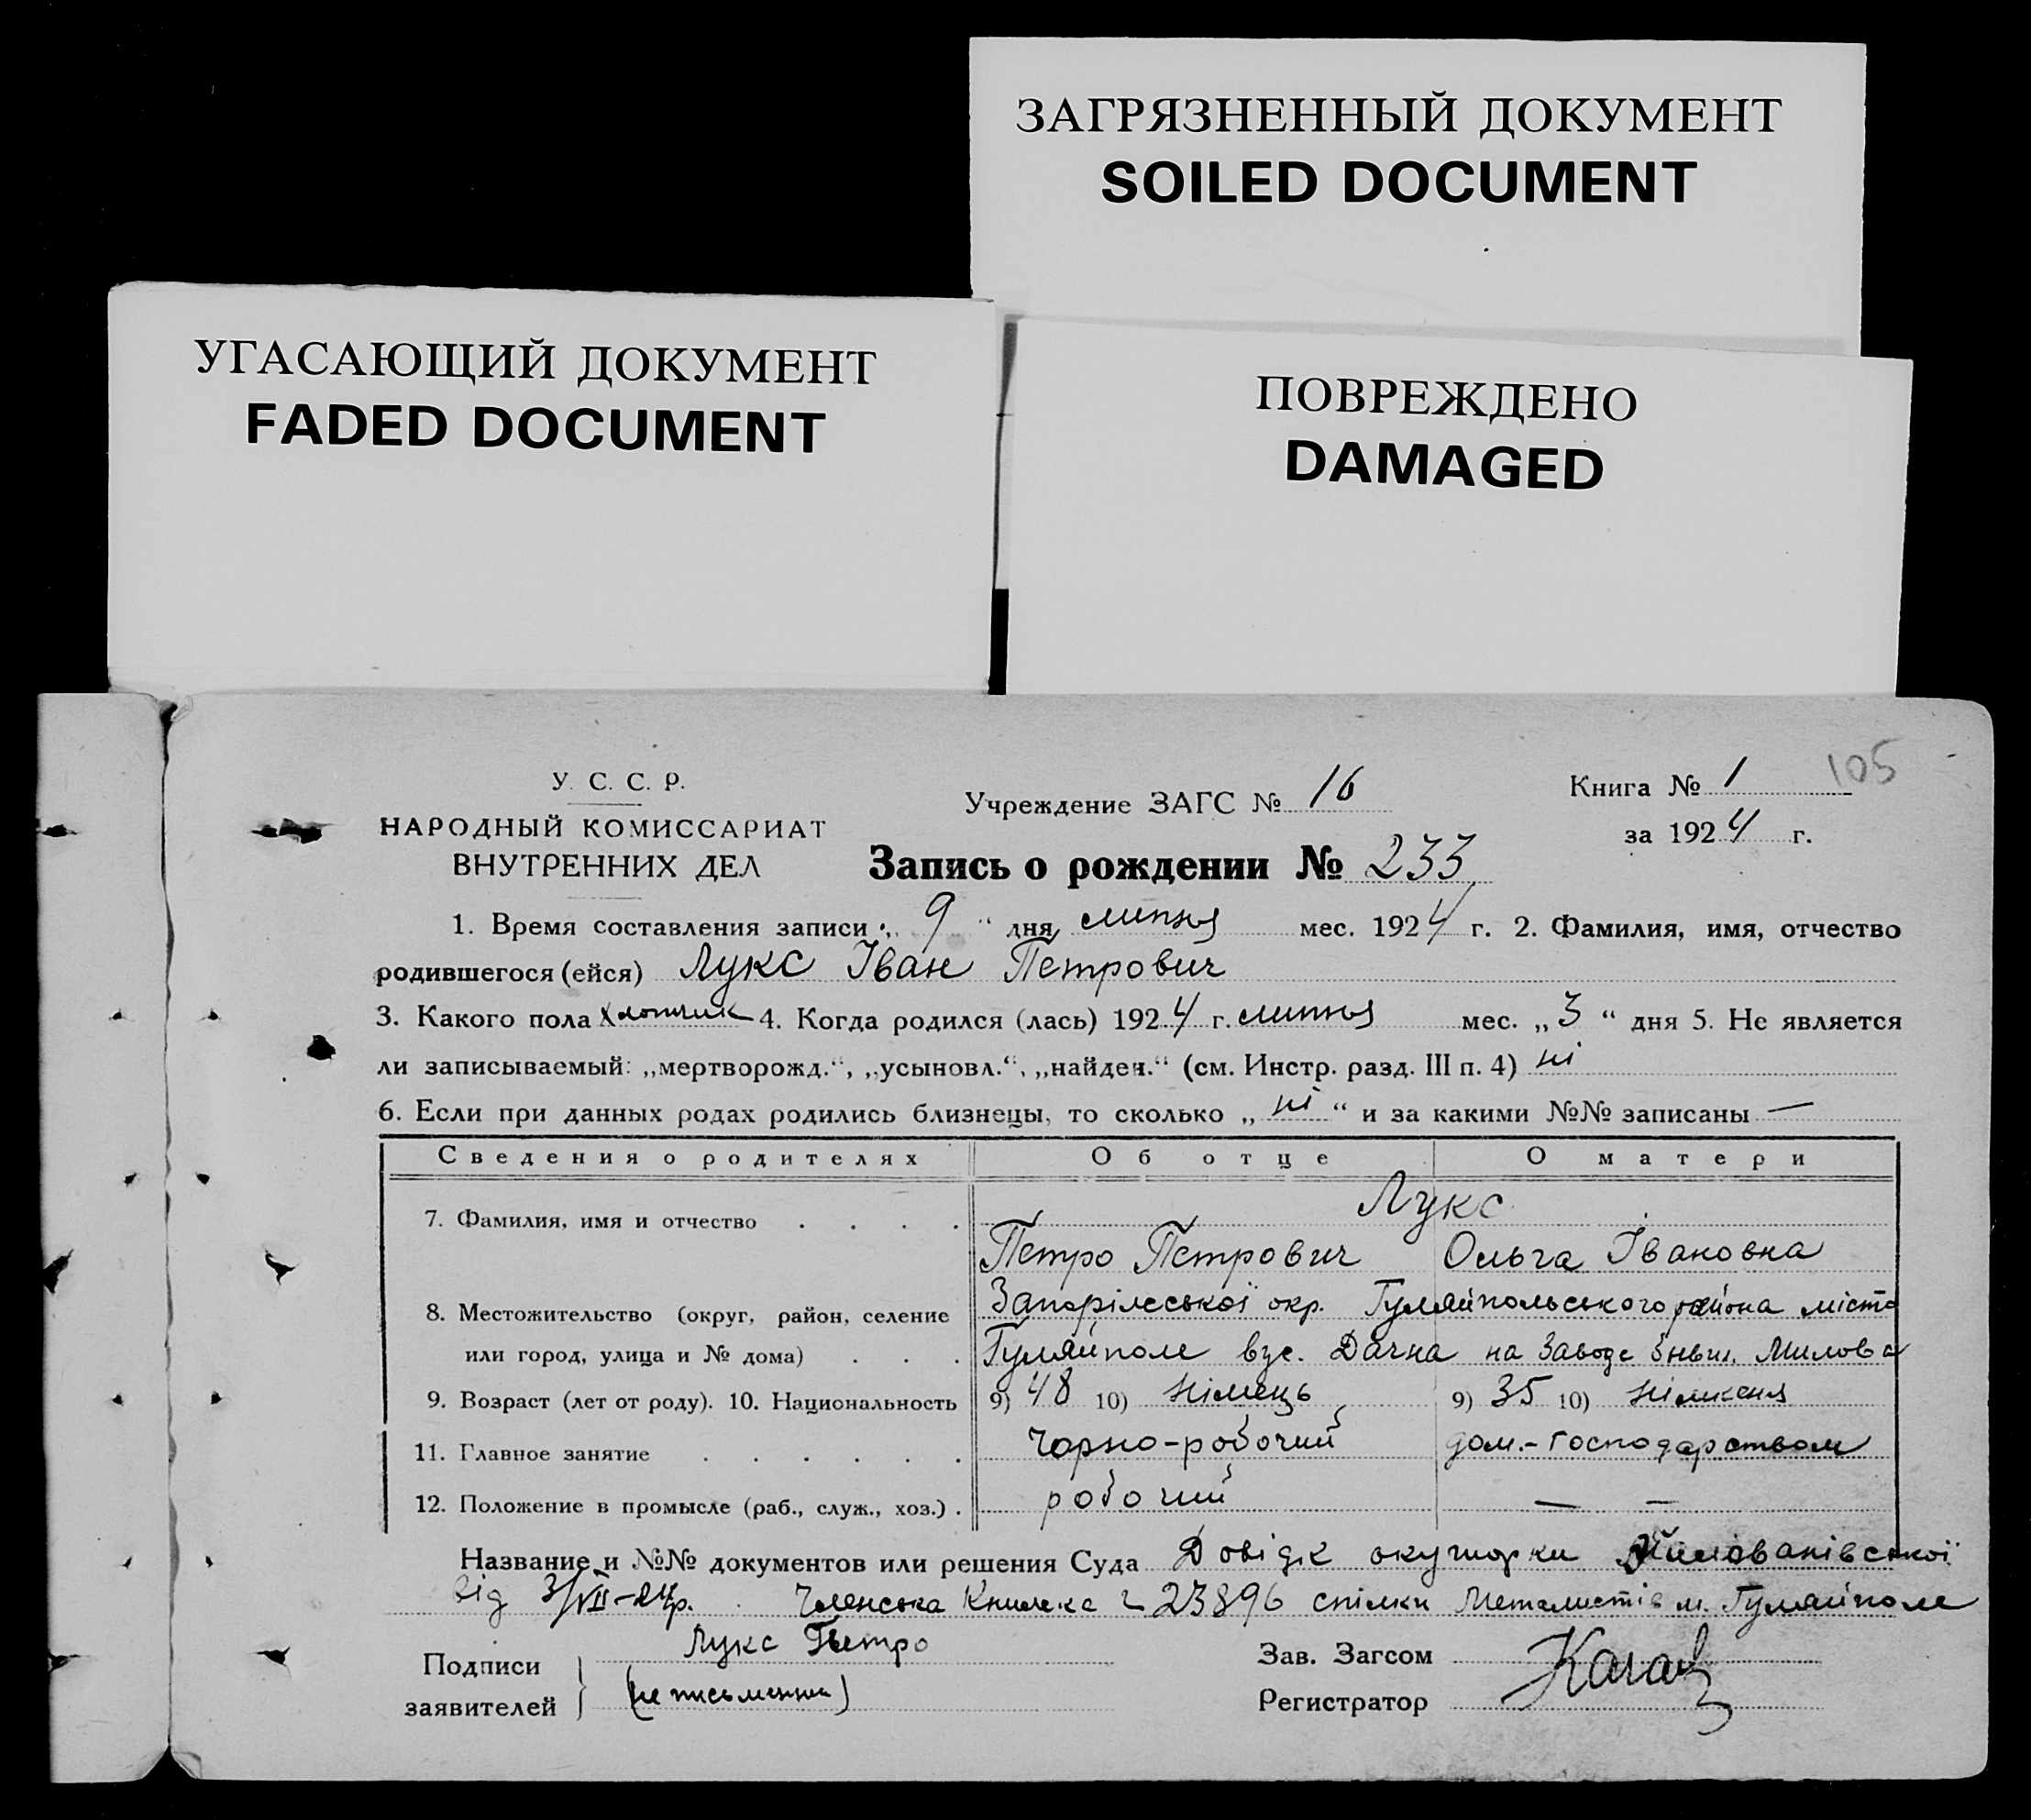 ЗАГРЯЗНЕННЫЙ ДОКУМЕНТ
SOILED DOCUMENT
УГАСАЮЩИЙ ДОКУМЕНТ
FADED DOCUMENT
ПОВРЕЖДЕНО
DAMAGED
105
У. С. С. Р.
НАРОДНЫЙ КОМИССАРИАТ
ВНУТРЕННИХ ДЕЛ
Учреждение ЗАГС № 16
Книга № 1
за 1924 г.
Запись о рождении № 233
1. Время составления записи „ 9 “ дня липня мес. 1924 г. 2. Фамилия, имя, отчество
родившегося (ейся) Лукс Іван Петрович
3. Какого пола Хлопчик 4. Когда родился (лась) 1924 г. липня мес. „ 3 “ дня 5. Не является
ли записываемый: „мертворожд.“, „усыновл.“, „найден.“ (см. Инстр. разд. III п. 4) ні
6. Если при данных родах родились близнецы, то сколько „ ні “ и за какими №№ записаны —
Сведения о родителях Об отце О матери
7. Фамилия, имя и отчество . . . . Лукс
Петро Петрович Ольга Івановна
8. Местожительство (округ, район, селение Запоріжської окр. Гуляйпольського района місто
или город, улица и № дома) . . . Гуляйполе вул. Дачна на Заводе
9. Возраст (лет от роду). 10. Национальность 9) 48 10) Німець 9) 35 10) Німкеня
11. Главное занятие . . . . . . Чорно-робочий дом.-господарством
12. Положение в промысле (раб., служ., хоз.) . робочий — —
Название и №№ документов или решения Суда Довідк акушорки
від 3/VII-24р. Членська Книжка 23896 спілки Металистів м. Гуляйполе
Подписи
заявителей
Лукс Петро
(не письменни)
Зав. Загсом
Регистратор